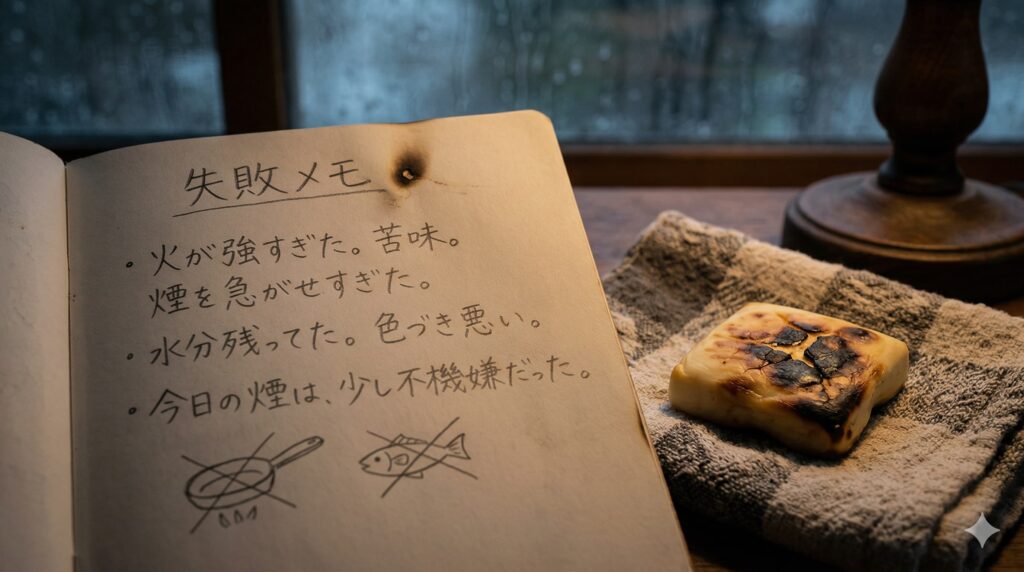 失敗メモ
・火が強すぎた。苦味。
煙を急がせすぎた。
・水分残ってた。色づき悪い。
・今日の煙は、少し不機嫌だった。